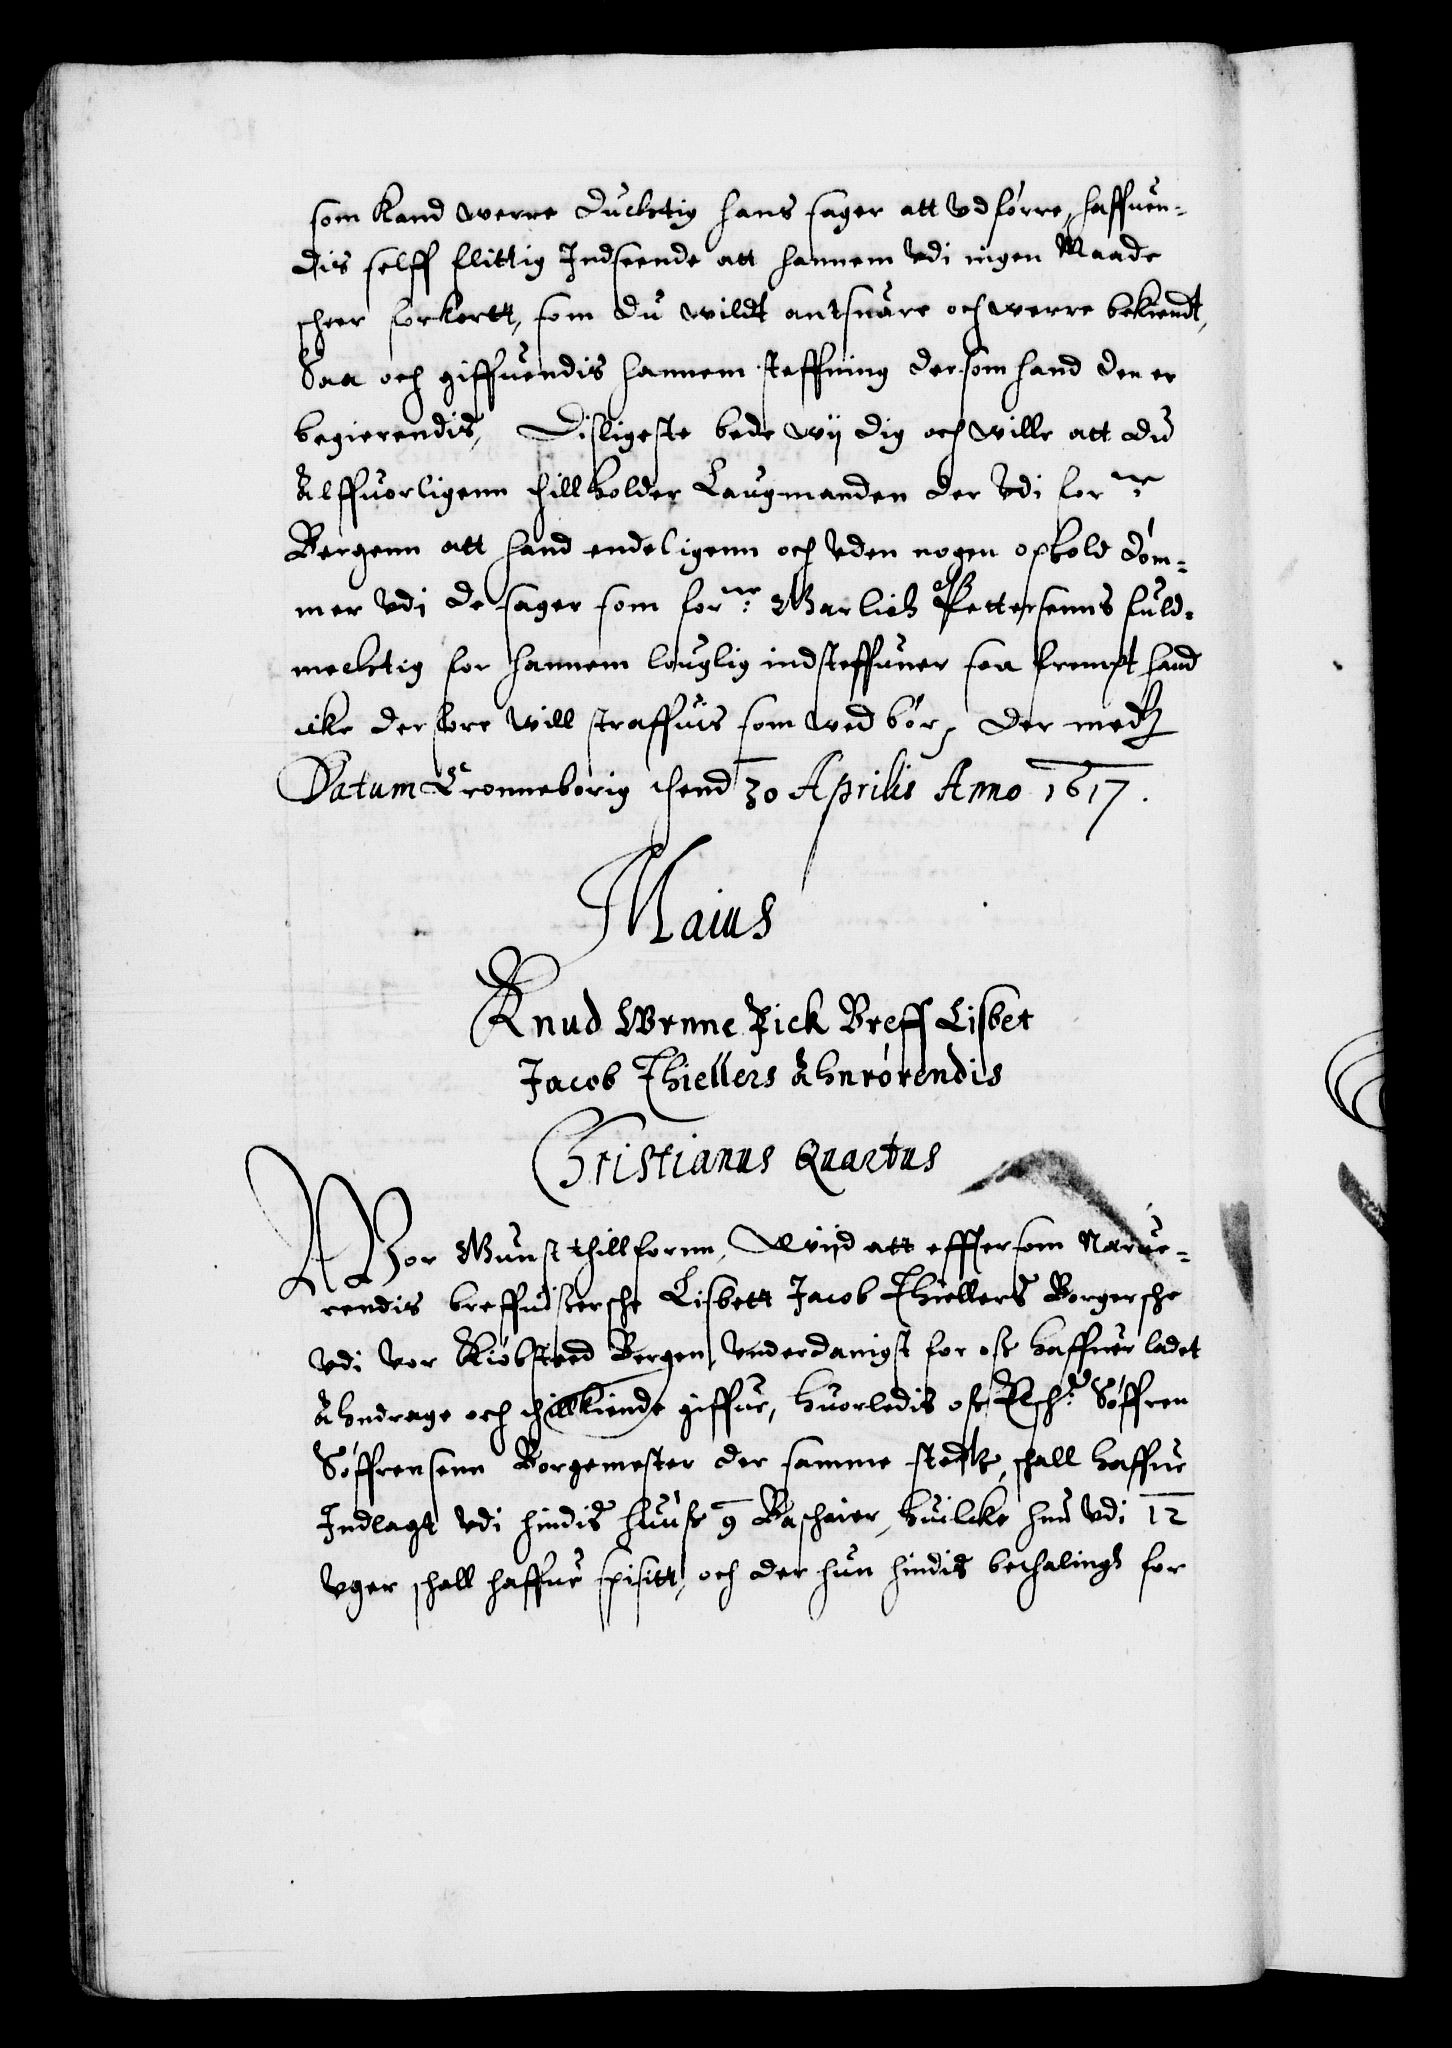 som kand werre ducktig hans sager att vdførre, haffuen-
dis selff flittig Indseende att hannem vdi ingen Maade
scheer forkortt, som du wildt antsuare och werre bekiendt,
Saa och giffuendis hannem steffning dersom hand den er
begierendis, Disligeste bede wij dig och wille att du
Alffuorligenn thillholder Laugmanden der vdi for:ne
Bergenn att hand endeligenn och vden nogen ophold døm-
mer vdi de sager som for:ne Warlich Pettersenns fuld-
mecktig for hannem louglig indsteffuner saa frempt hand
icke derfore will straffuis som wed bør, Der medt
Datum Cronneborig thend 30 Aprilis Anno 1617.
Maius
Knud Wrnne Fick Breff Lisbet
Jacob Thiellers Ahnrørendis
Christianus Quartus
Wor Gunst thillfornn, Wijd att effter som Nærue-
rendis breffuisersche Lisbett Jacob Thiellers Borgersche
vdi vor Kiøbsteed Bergen, vnderdanigst for oss haffuer ladet
Ahndrage och thillkiende giffue, huorledis oss Elsch: Søffren
Søffrensenn Borgemester der samme stedtz, schall haffue
Indlagt vdi hindis huuss 9 Baschaier, huilcke hun vdi 12
vger schall haffue spisitt, och der hun hindis bethalingh for